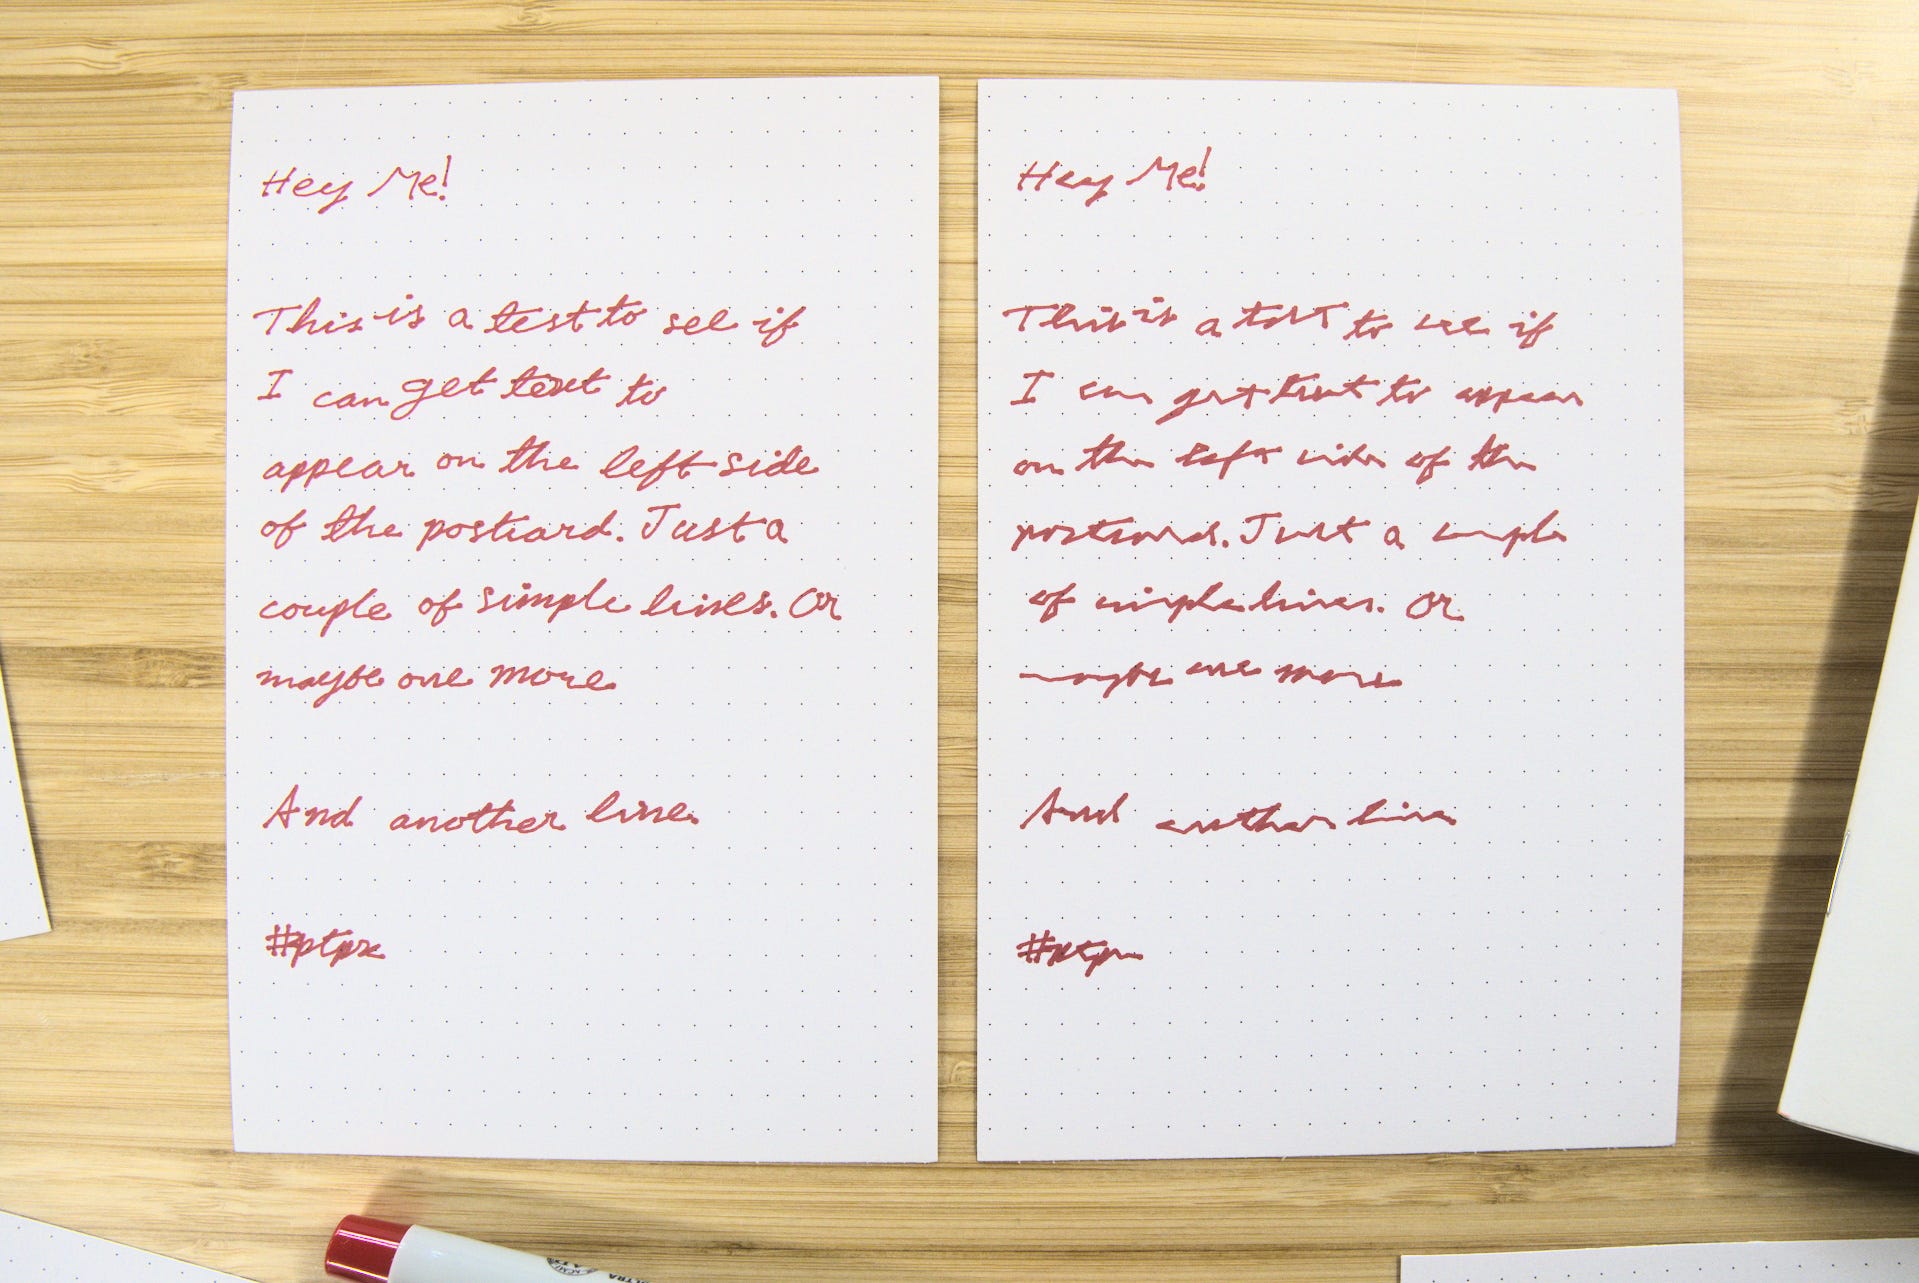 Hey Me!
This is a test to see if
I can get text to
appear on the left side
of the postcard. Just a
couple of simple lines. Or
maybe one more
And another line
#ptpx
Hey Me!
This is a test to see if
I can get text to appear
on the left side of the
postcard. Just a couple
of simple lines. Or
maybe one more
And another line